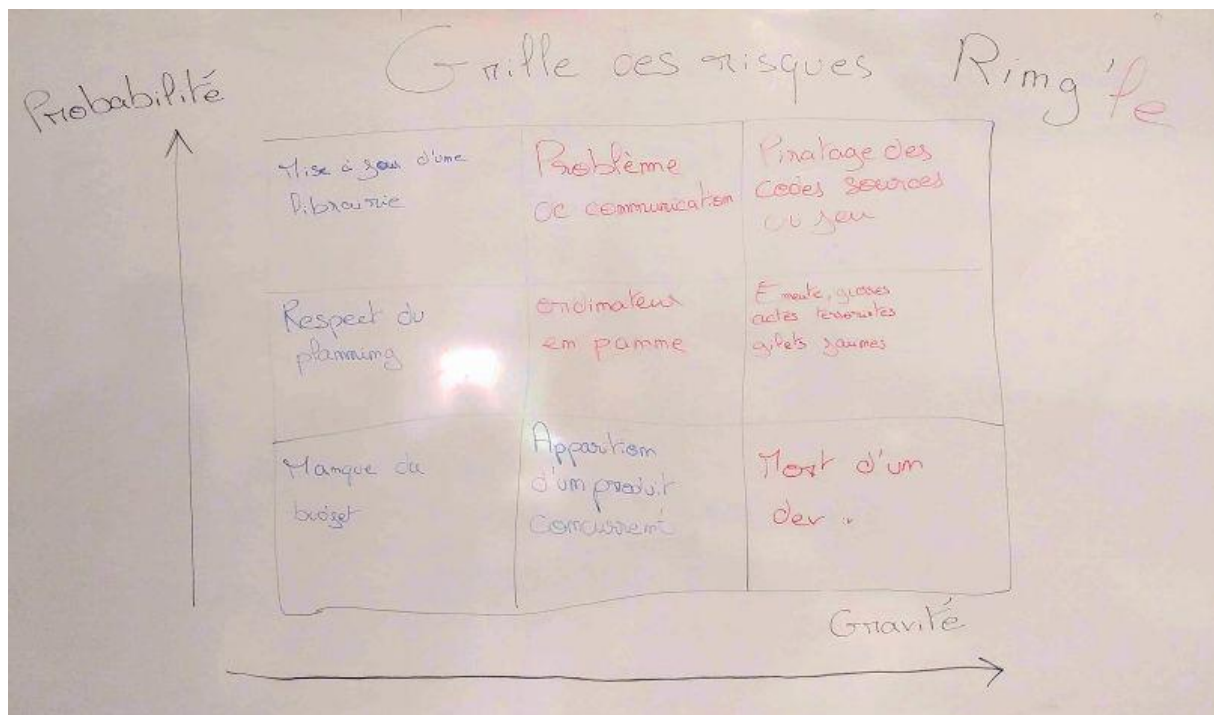 Grille des risques Ring'le
Probabilité
Mise à jour d'une
librairie
Problème
de communication
Piratage des
codes sources
du jeu
Respect du
planning
ordinateur
en panne
Emeute, grosses
actes terroristes
gilets jaunes
Manque du
budget
Apparition
d'un produit
concurrent
Mort d'un
dev.
Gravité